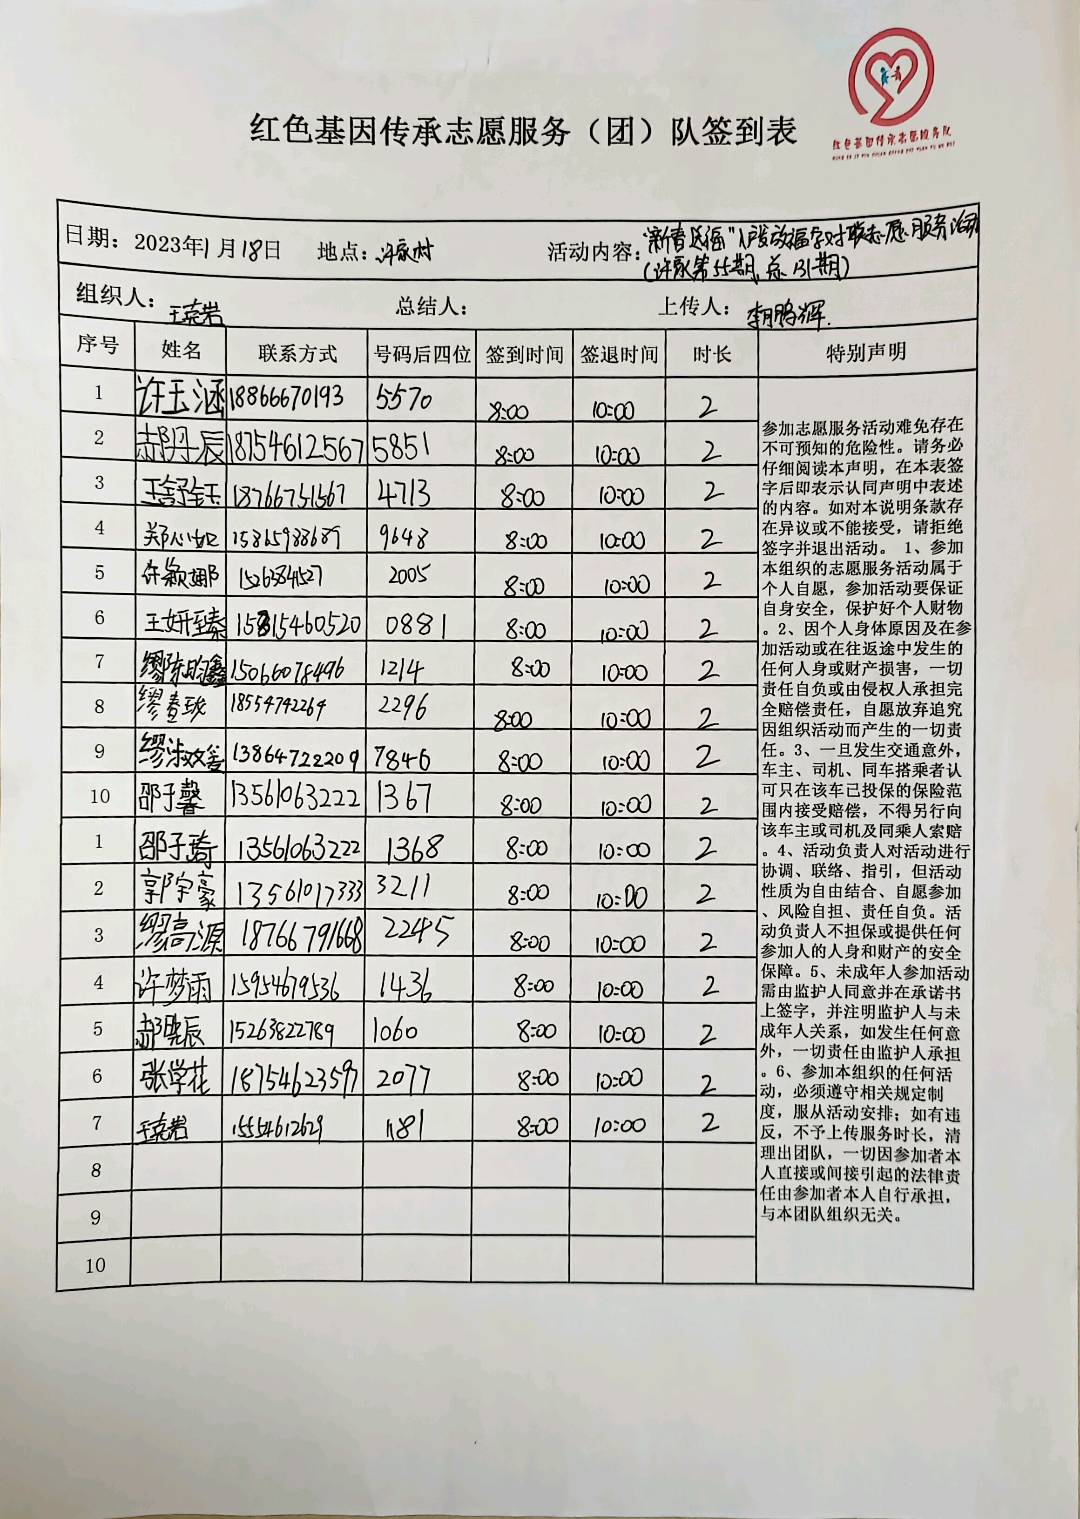 红色基因传承志愿服务队
红色基因传承志愿服务（团）队签到表
日期：2023年1月18日 地点：许家村 活动内容：“新春送福”入户发放福字对联志愿服务活动
（许家第55期，总131期）
组织人：王克岩 总结人： 上传人：李鹏辉.
序号 姓名 联系方式 号码后四位 签到时间 签退时间 时长 特别声明
1 许玉涵 18866670193 5570 8:00 10:00 2
2 郝丹辰 18754612567 5851 8:00 10:00 2
3 王舒钰 18766751567 4713 8:00 10:00 2
4 郑心如 15865988689 9648 8:00 10:00 2
5 许颖娜 2005 8:00 10:00 2
6 王妍臻 15815460520 0881 8:00 10:00 2
7 缪陈昀鑫 15066078496 1214 8:00 10:00 2
8 18554742264 2296 8:00 10:00 2
9 13864722209 7846 8:00 10:00 2
10 邵子馨 13561063222 1367 8:00 10:00 2
1 邵子琦 13561063222 1368 8:00 10:00 2
2 郭宇豪 13561017333 3211 8:00 10:00 2
3 缪高源 18766791668 2245 8:00 10:00 2
4 许梦雨 15954679536 1436 8:00 10:00 2
5 郝晓辰 15263822789 1060 8:00 10:00 2
6 张学花 18754623597 2077 8:00 10:00 2
7 王克岩 15554612629 1181 8:00 10:00 2
8
9
10
参加志愿服务活动难免存在
不可预知的危险性。请务必
仔细阅读本声明，在本表签
字后即表示认同声明中表述
的内容。如对本说明条款存
在异议或不能接受，请拒绝
签字并退出活动。 1、参加
本组织的志愿服务活动属于
个人自愿，参加活动要保证
自身安全，保护好个人财物
。2、因个人身体原因及在参
加活动或在往返途中发生的
任何人身或财产损害，一切
责任自负或由侵权人承担完
全赔偿责任，自愿放弃追究
因组织活动而产生的一切责
任。3、一旦发生交通意外，
车主、司机、同车搭乘者认
可只在该车已投保的保险范
围内接受赔偿，不得另行向
该车主或司机及同乘人索赔
。4、活动负责人对活动进行
协调、联络、指引，但活动
性质为自由结合、自愿参加
、风险自担、责任自负。活
动负责人不担保或提供任何
参加人的人身和财产的安全
保障。5、未成年人参加活动
需由监护人同意并在承诺书
上签字，并注明监护人与未
成年人关系，如发生任何意
外，一切责任由监护人承担
。6、参加本组织的任何活
动，必须遵守相关规定制
度，服从活动安排；如有违
反，不予上传服务时长，清
理出团队，一切因参加者本
人直接或间接引起的法律责
任由参加者本人自行承担，
与本团队组织无关。